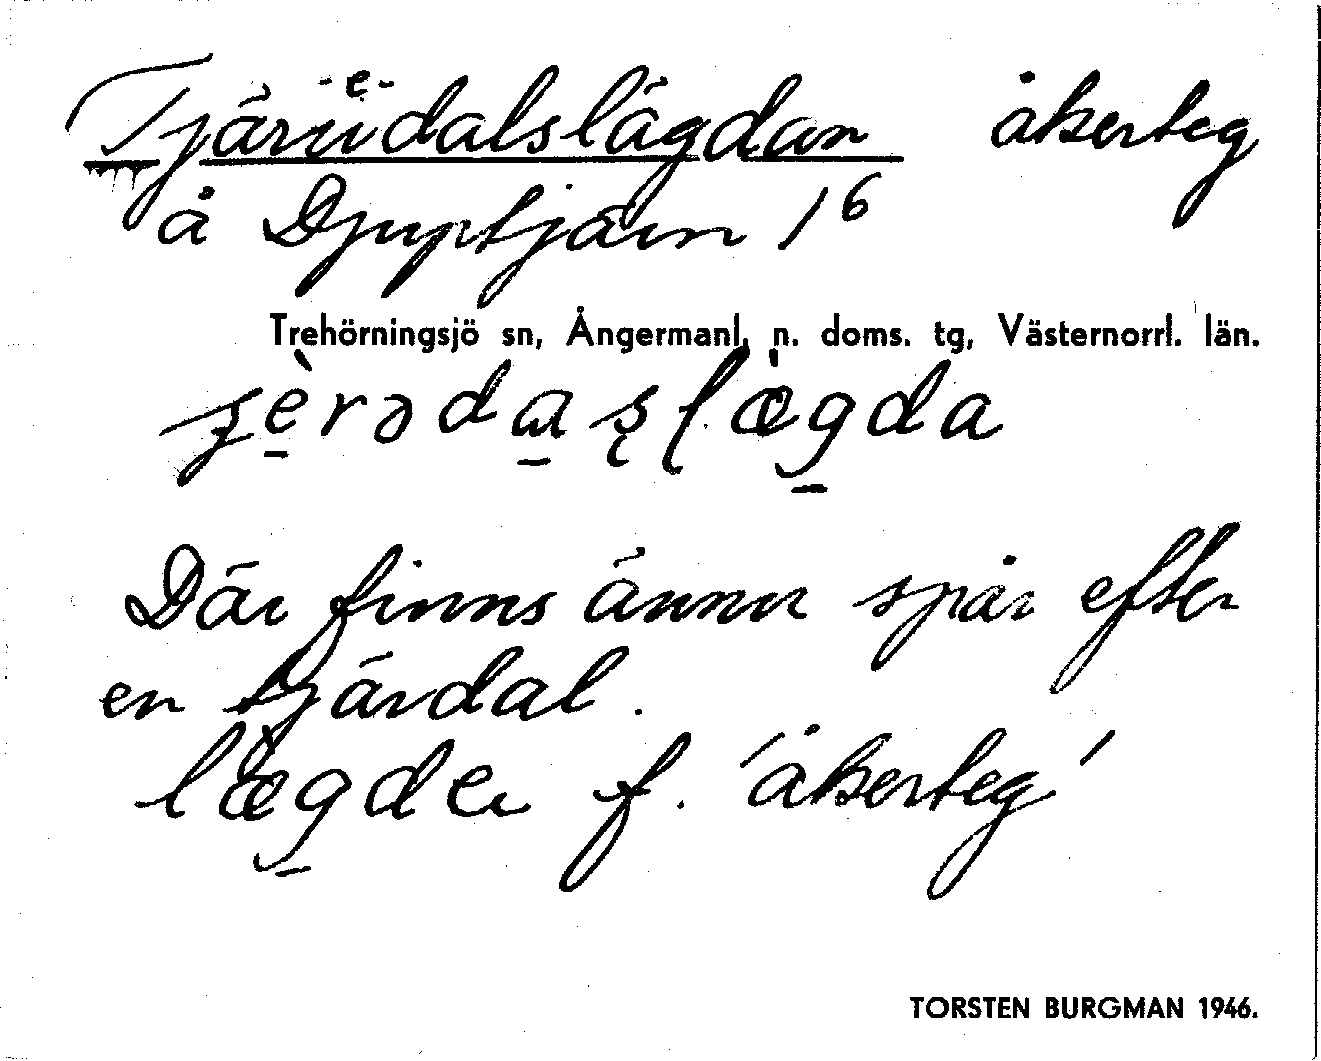 -e-
Tjärüdalslägdan åkerteg
å Djuptjärn 1⁶
Trehörningsjö sn, Ångermanl. n. doms. tg, Västernorrl. län.
Där finns ännu spår efter
en tjärdal.
f. 'åkerteg'
TORSTEN BURGMAN 1946.